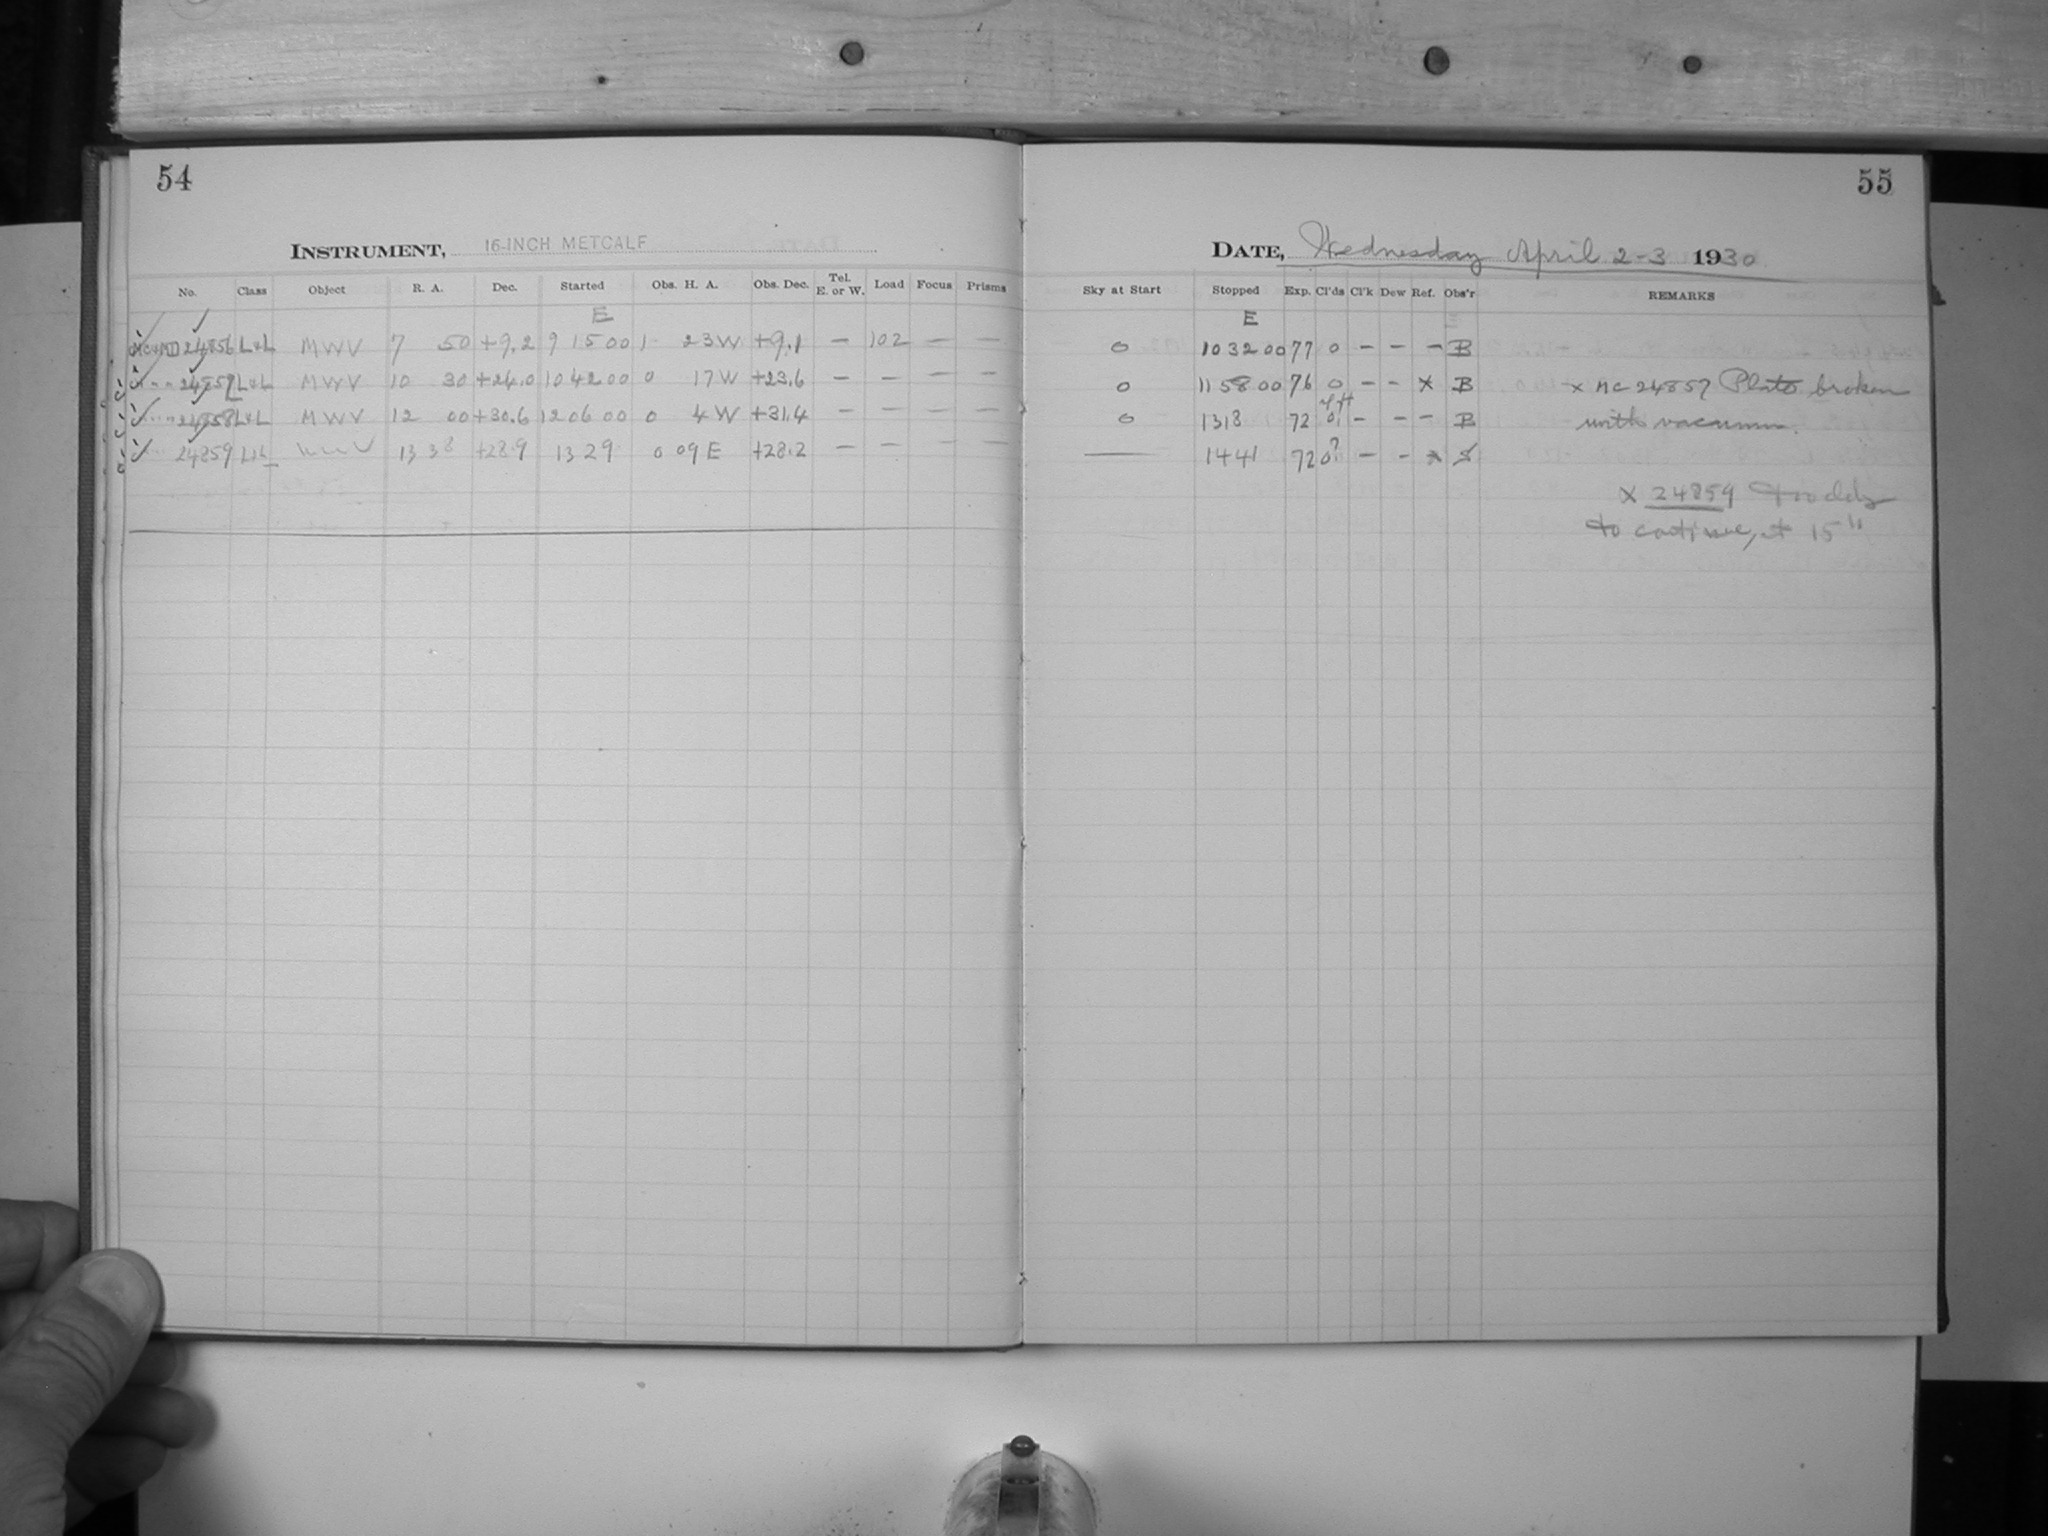 54
55
INSTRUMENT, 16-INCH METCALF
DATE, Wednesday April 2-3 1930
No. Class Object R. A. Dec. Started Obs. H. A. Obs. Dec. Tel. E. or W. Load Focus Prisms Sky at Start Stopped Exp. Cl'ds Cl'k Dew Ref. Obs'r REMARKS
E E
24856 L&L MWV 7 50 +9.2 9 15 00 1 23W +9.1 — 102 — — 0 10 32 00 77 0 — — — B
24857 L&L MWV 10 30 +24.0 10 42 00 0 17W +23.6 — — — — 0 11 58 00 76 0 — — x B x MC 24857 Plate broken
24858 L&L MWV 12 00 +30.6 12 06 00 0 4W +31.4 — — — — 0 13 18 72 0 — — — B with vacuum.
24859 L&L MWV 13 38 +28.9 13 29 0 09E +28.2 — — — — — 14 41 72 0? — — x
x 24859
to 15